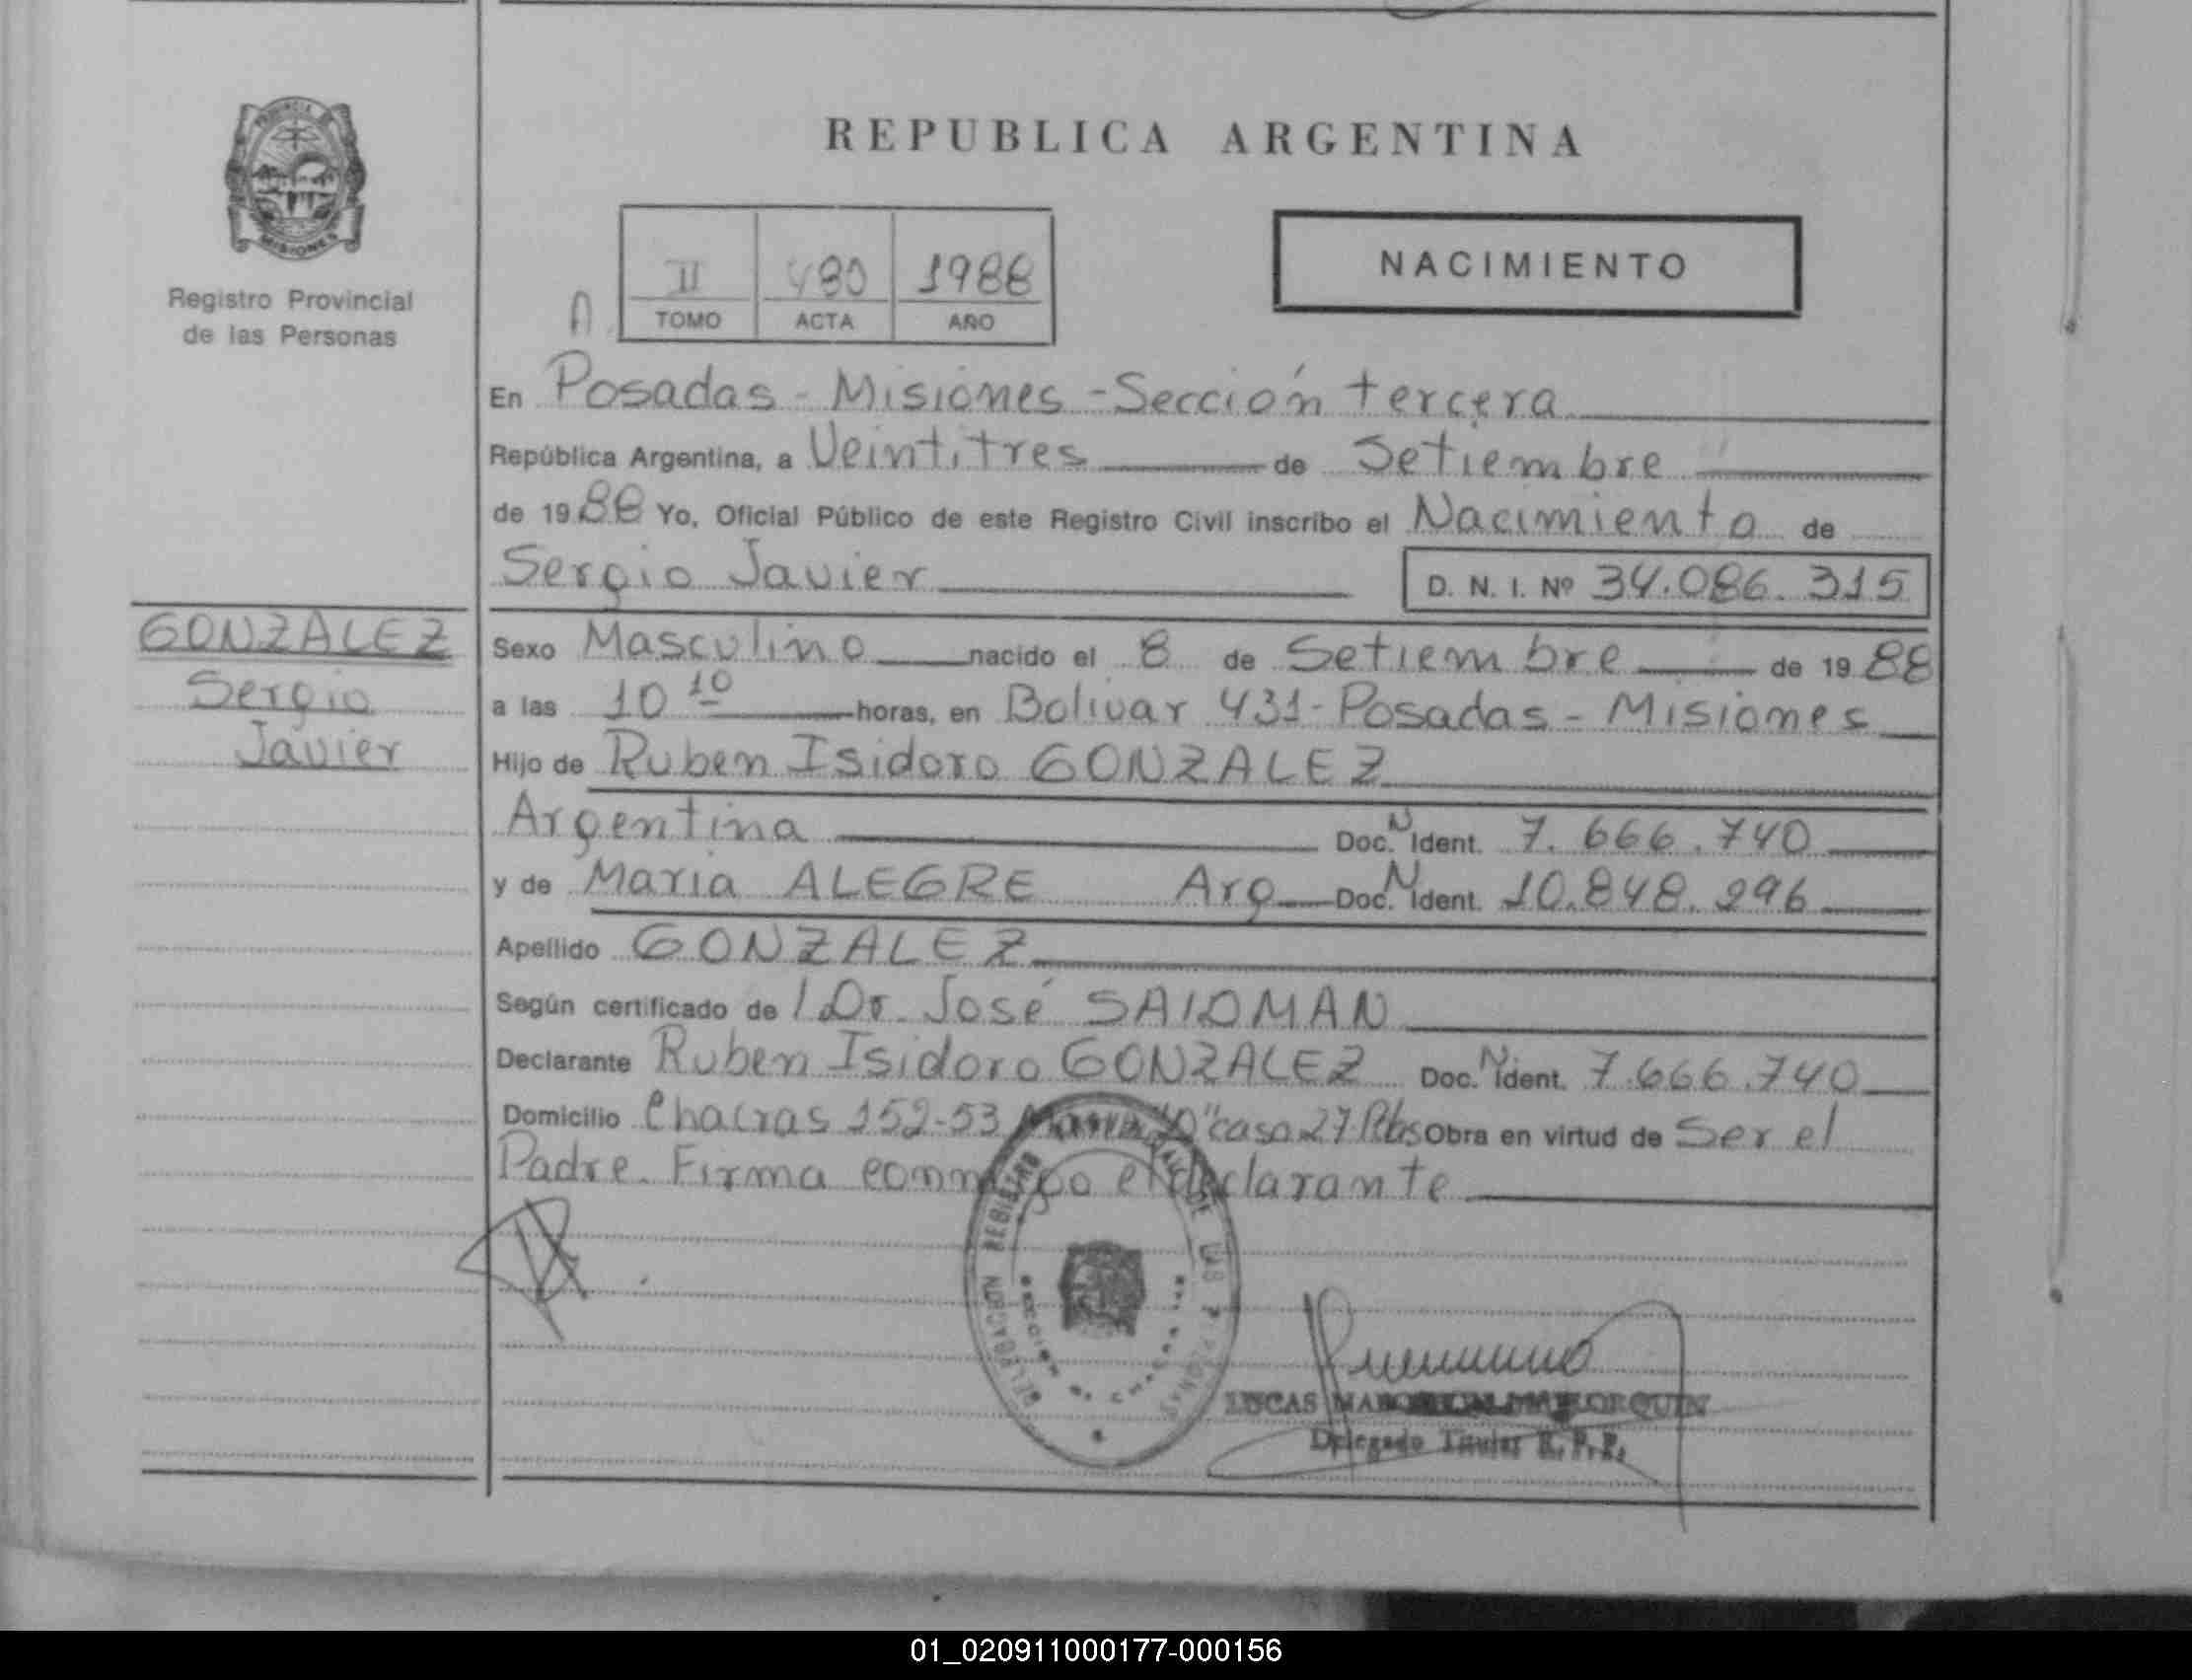 PROVINCIA DE
MISIONES
Registro Provincial
de las Personas
REPUBLICA ARGENTINA
NACIMIENTO
A
II 480 1988
TOMO ACTA AÑO
En Posadas - Misiones - Sección tercera
República Argentina, a Veintitres de Setiembre
de 1988 Yo, Oficial Público de este Registro Civil inscribo el Nacimiento de
Sergio Javier D. N. I. Nº 34.086.315
GONZALEZ
Sergio
Javier
Sexo Masculino nacido el 8 de Setiembre de 1988
a las 10 10 horas, en Bolivar 431 - Posadas - Misiones
Hijo de Ruben Isidoro GONZALEZ
Argentina Doc. N Ident. 7.666.740
y de Maria ALEGRE Arg Doc. N Ident. 10.848.296
Apellido GONZALEZ
Según certificado de l Dr. José SAIDMAN
Declarante Ruben Isidoro GONZALEZ Doc. N Ident. 7.666.740
Domicilio Chacras 152-53 "D" casa 27 Pdas Obra en virtud de Ser el
Padre. Firma conmigo el declarante
DELEGACION REGISTRO DE LAS PERSONAS
LUCAS
Delegado Titular R. P. P.
01_020911000177-000156